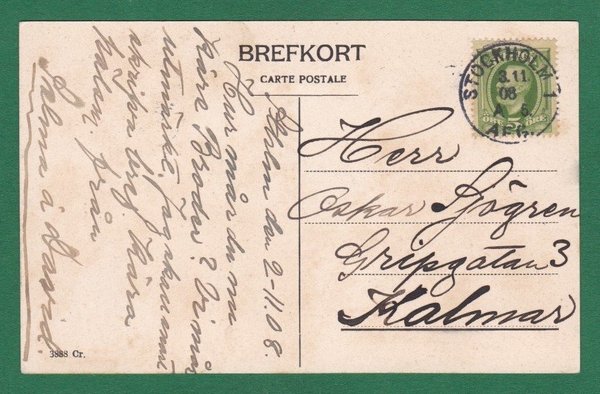 BREFKORT
CARTE POSTALE
STOCKHOLM 1
3.11
08
AFG.
ÖRE
Sthlm den 2-11.08.
Hur mår du nu
kära Broder? Vi mår
utmärkt, jag skall snart
skriva dig. Kära
hälsn. från
Selma å David.
Herr
Oskar Sjögren
Gripgatan 3
Kalmar
3888 Cr.